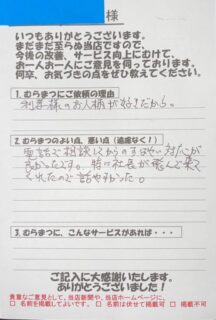 様
いつもありがとうございます。
まだまだ至らぬ当店ですので、
今後の改善、サービス向上にむけて、
お一人お一人にご意見を伺っております。
何卒、お気づきの点をぜひ教えてください。
1. むらまつにご依頼の理由
のお人柄が好きだから。
2. むらまつのよい点、悪い点（遠慮なく！）
電話で相談してからのすばやい対応が
良かったです。特に社長が飛んで来て
くれたので話やすかった。
3. むらまつに、こんなサービスがあれば・・・
ご記入に大感謝いたします。
ありがとうございました！
貴重なご意見として、当店新聞や、当店ホームページに、
□ 名前を掲載してよいです。 □ 名前は伏せて掲載可 □ 掲載不可